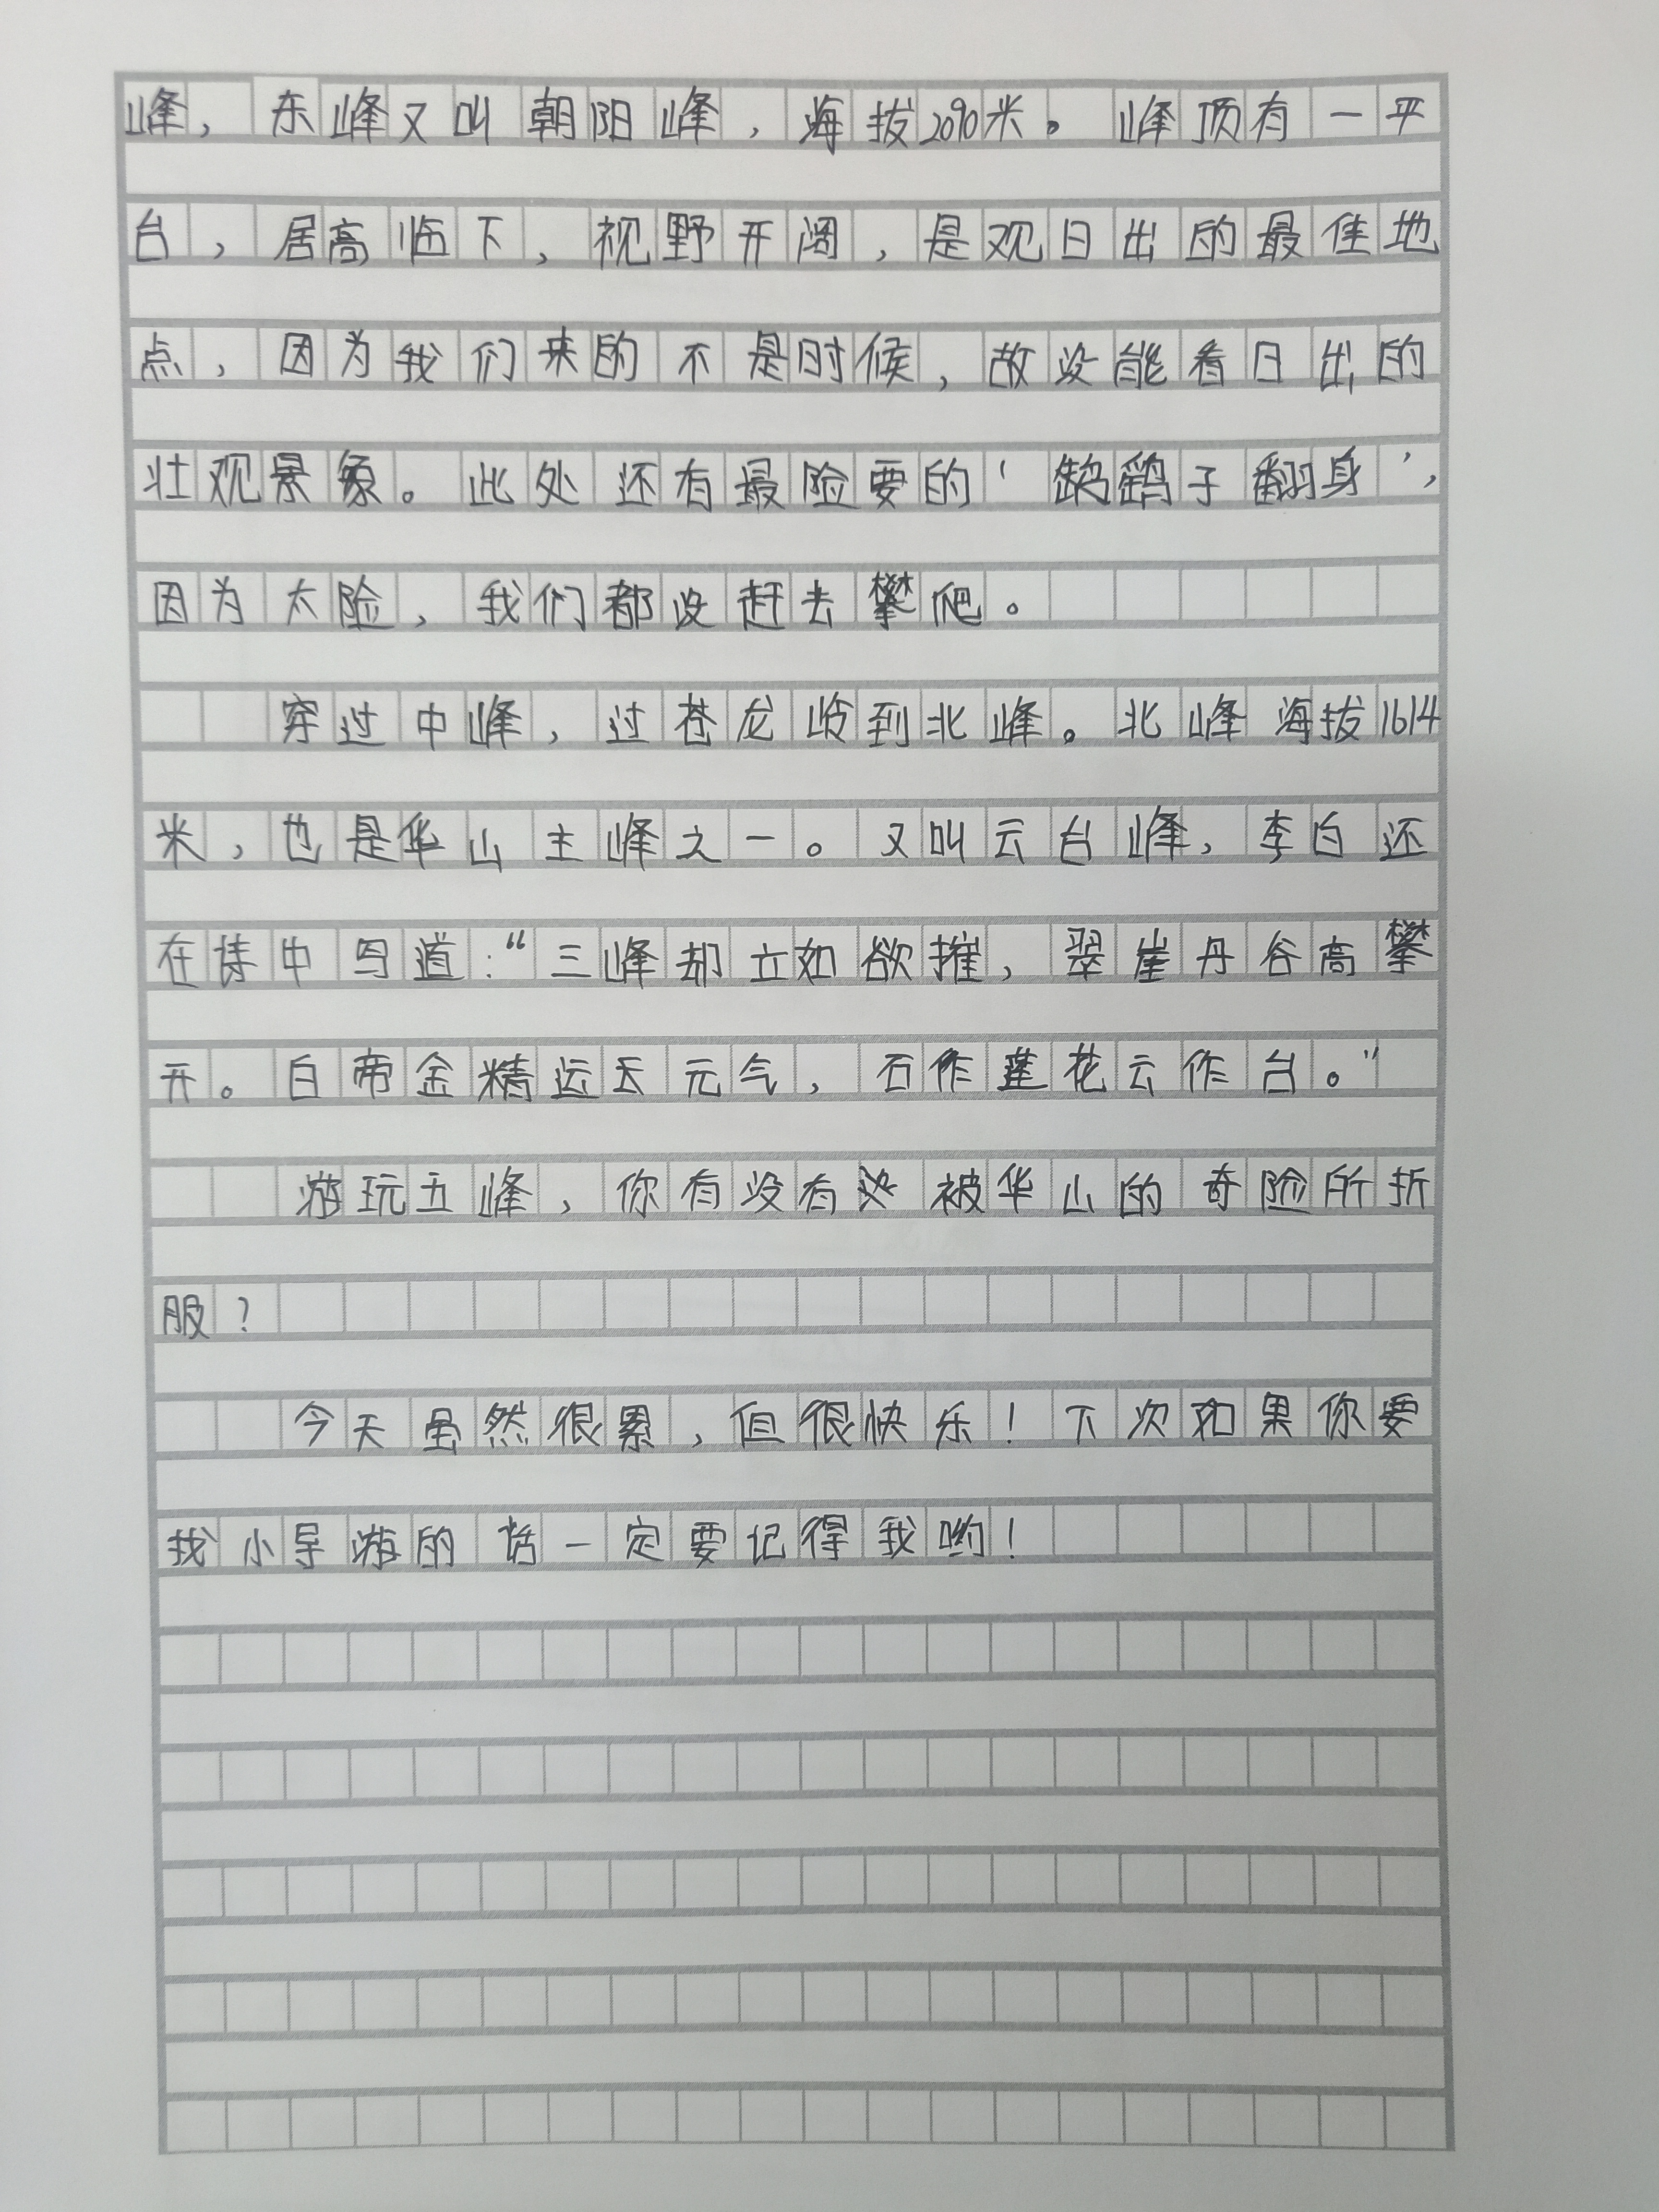 峰，东峰又叫朝阳峰，海拔2090米。峰顶有一平
台，居高临下，视野开阔，是观日出的最佳地
点，因为我们来的不是时候，故没能看日出的
壮观景象。此处还有最险要的‘鹞子翻身’，
因为太险，我们都没赶去攀爬。
穿过中峰，过苍龙岭到北峰。北峰海拔1614
米，也是华山主峰之一。又叫云台峰，李白还
在诗中写道：“三峰却立如欲摧，翠崖丹谷高攀
开。白帝金精运天元气，石作莲花云作台。”
游玩五峰，你有没有被华山的奇险所折
服？
今天虽然很累，但很快乐！下次如果你要
找小导游的话一定要记得我哟！